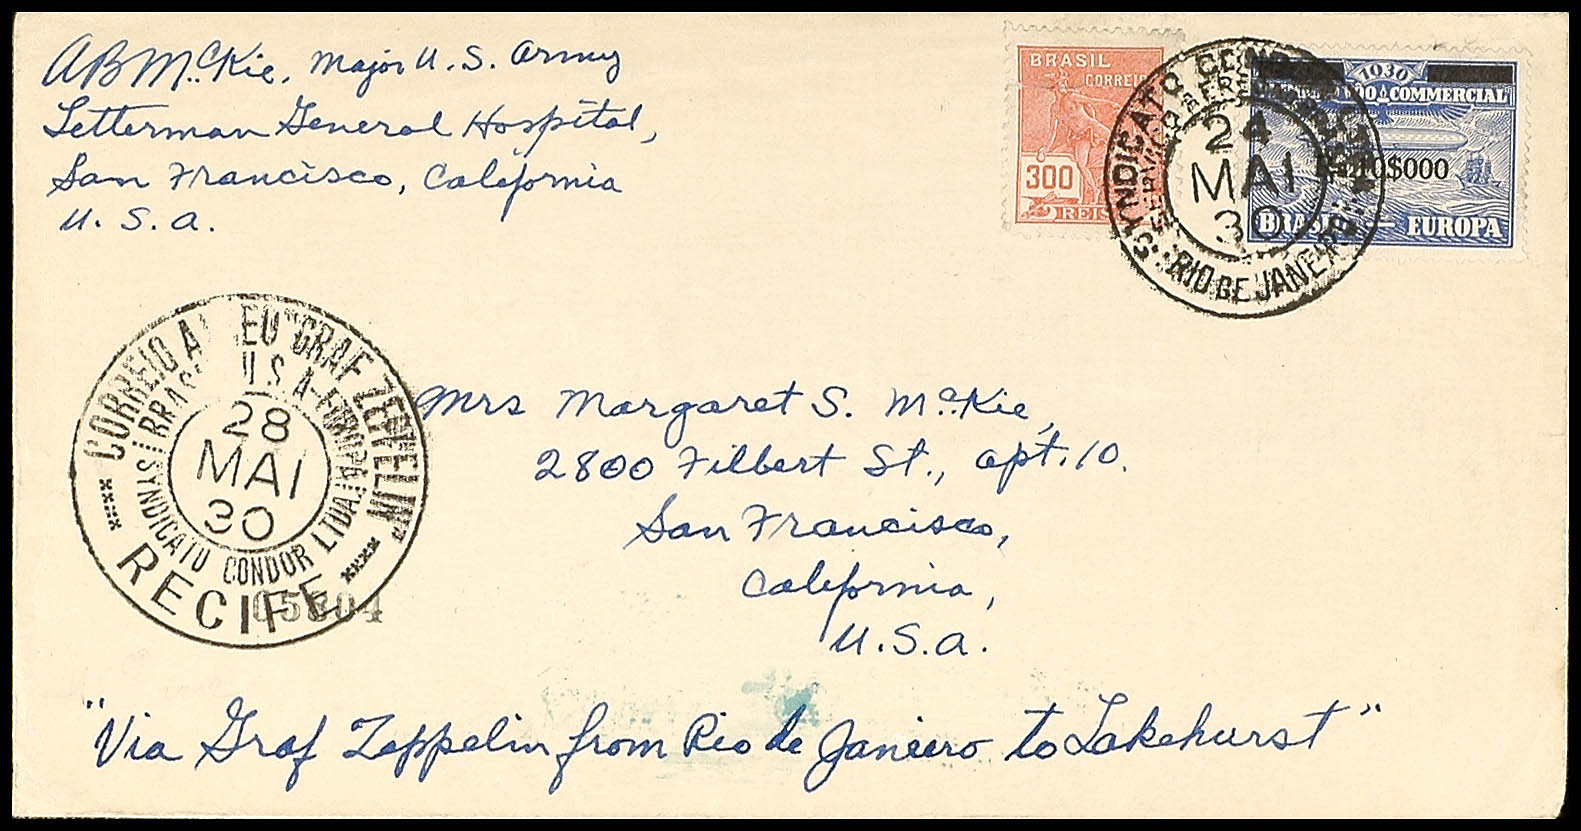 A B McKie, Major U. S. Army
Letterman General Hospital,
San Francisco, California
U. S. A.
BRASIL
CORREIO
300
REIS
1930
COMMERCIAL
10$000
BRASIL — EUROPA
SYNDICATO CONDOR
SERVIÇO AEREO
24
MAI
30
RIO DE JANEIRO
CORREIO AEREO "GRAF ZEPPELIN"
BRASIL U.S.A-EUROPA
28
MAI
30
SYNDICATO CONDOR LTDA.
RECIFE
Mrs Margaret S. McKie,
2800 Filbert St., apt. 10.
San Francisco,
California,
U.S.A.
"Via Graf Zeppelin from Rio de Janeiro to Lakehurst"